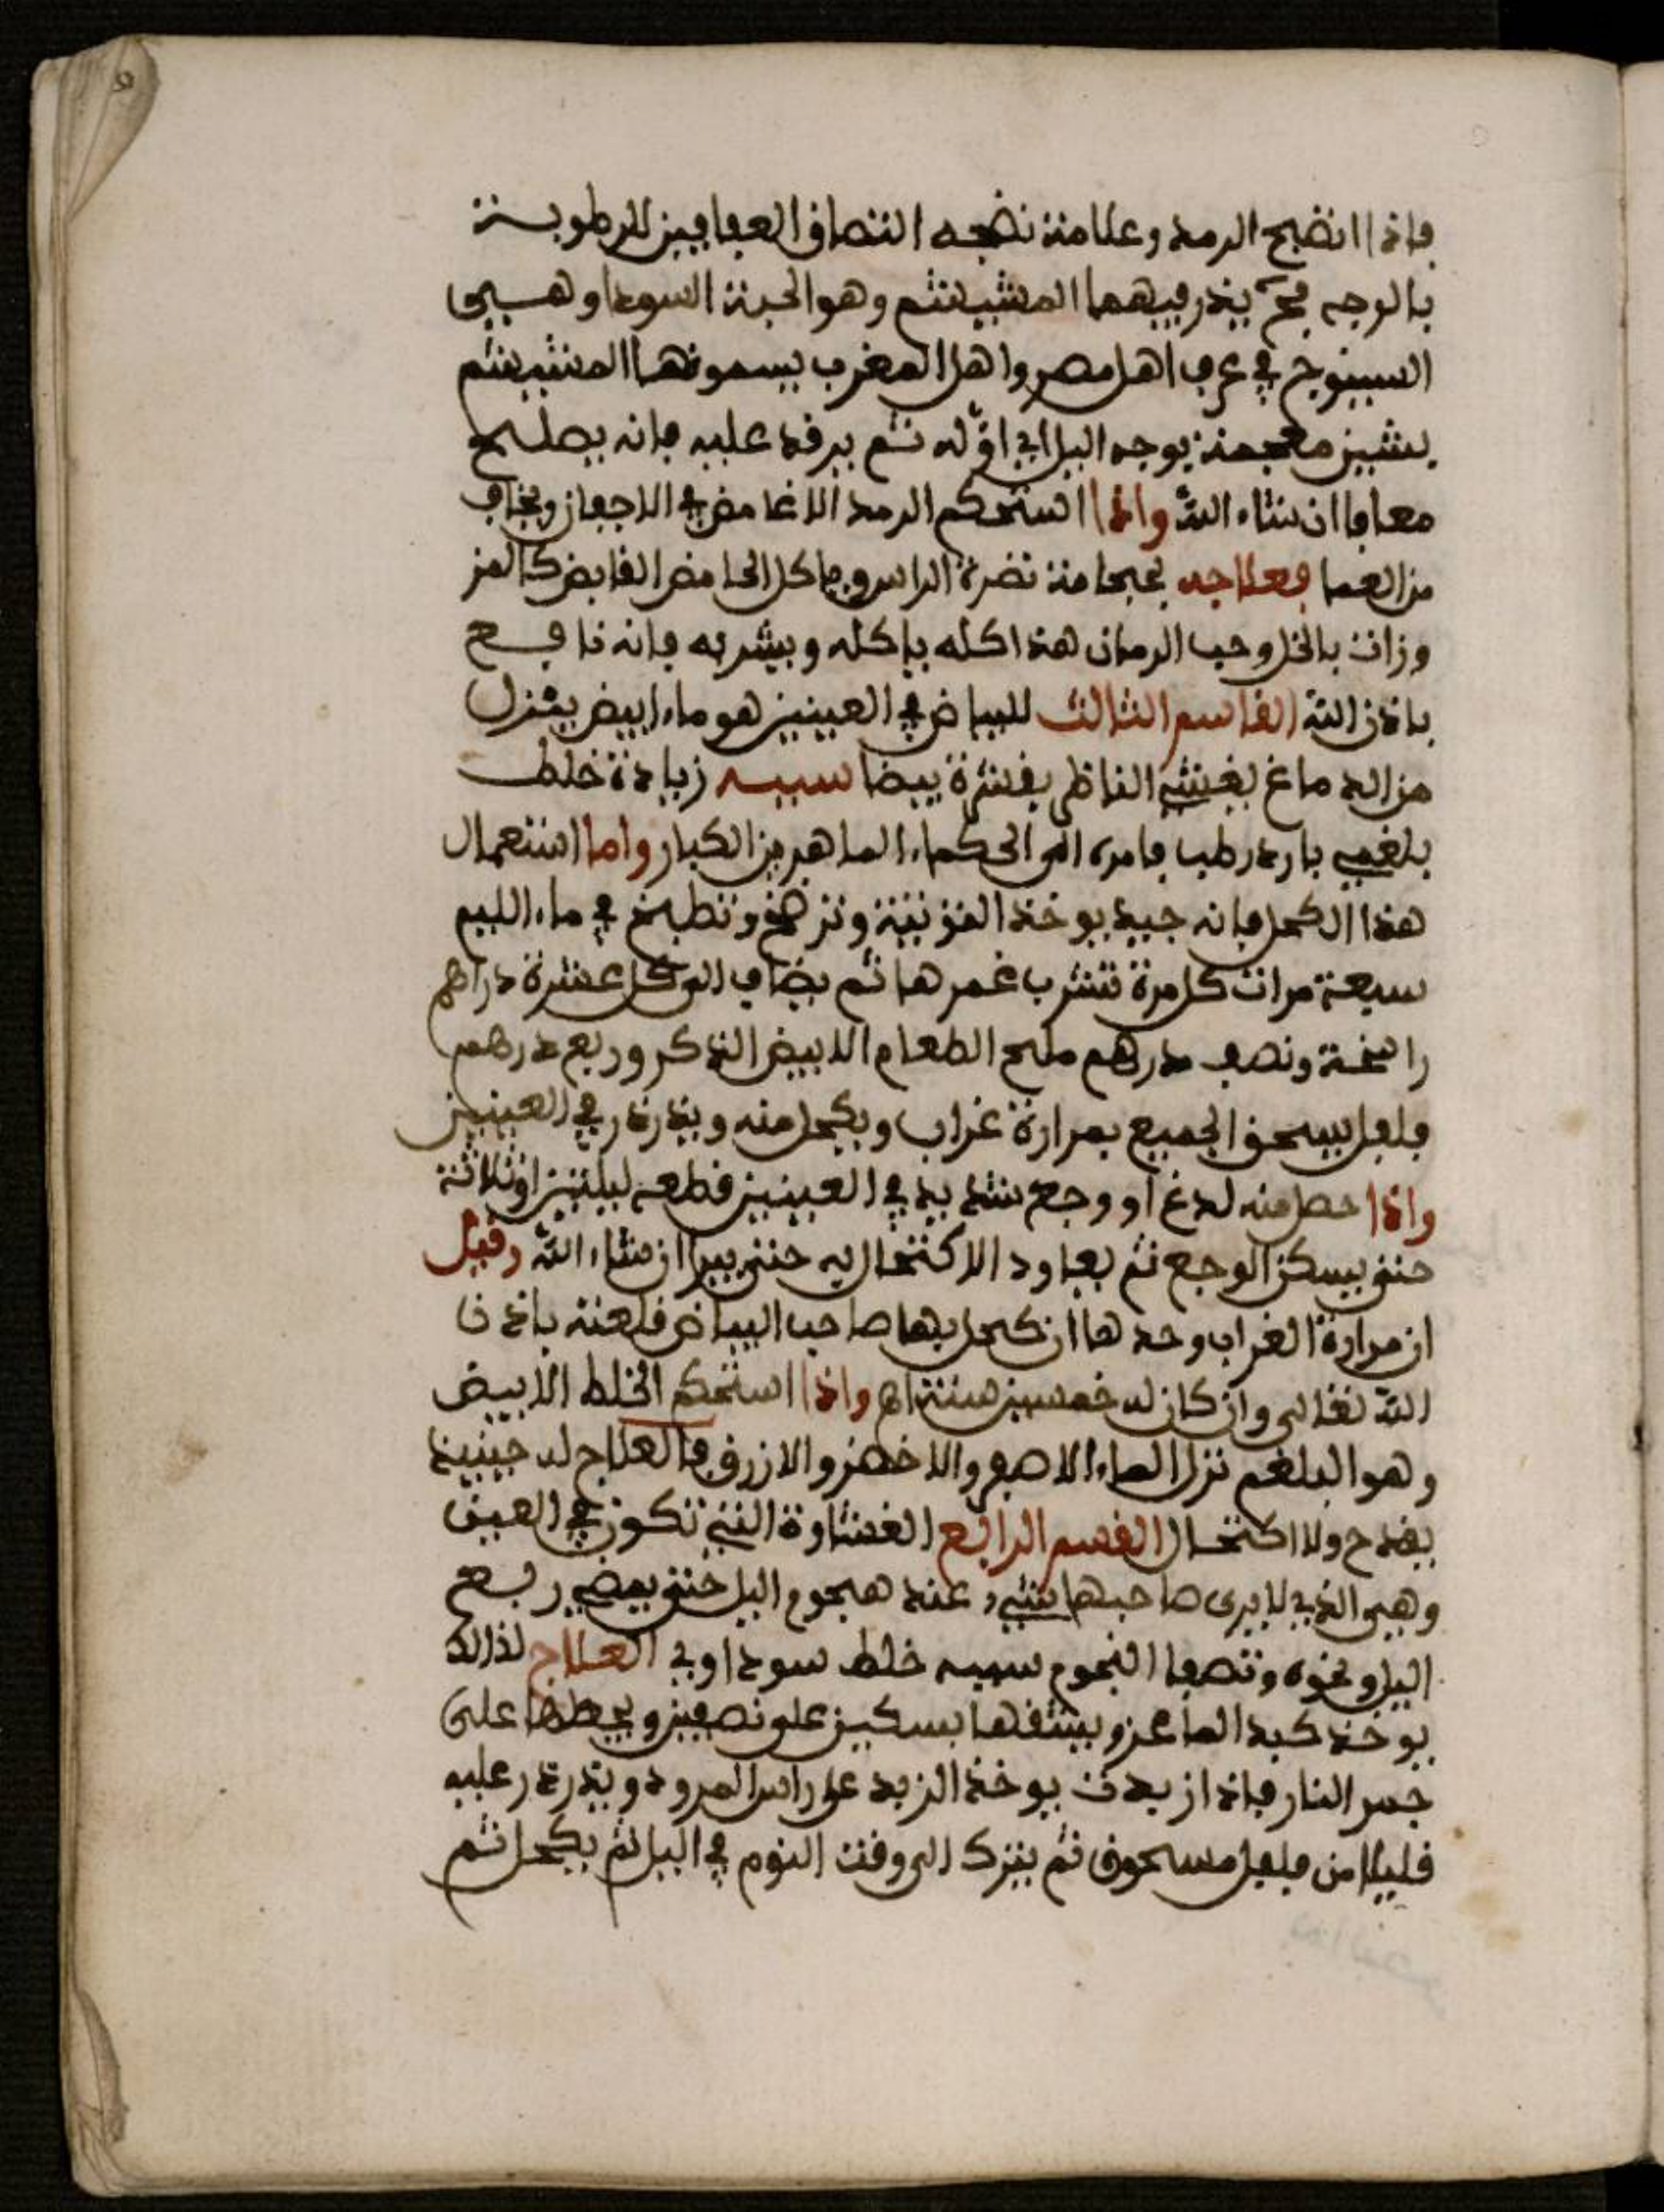 فاذا انضج الرمد وعلامة نضجه التصاق العفافيز للرطوبة
بالوجه فح يذر فيهما المشيشم وهو الحبة السودا وهي
السينوج في عرف اهل مصر واهل المغرب يسمونها المشيشم
يوجه اليل اي اوله ثم يرقد عليه فانه يصلح
معافا ان شاء الله واذا استحكم الرمد الاغامض في الاجفان ويخاف
من العما فعلاجه بحجامة نقرة الراس وياكل الحامض القابض كالمز
وزات بالخل وحب الرمان هذا اكله ياكله ويشربه فانه نافع
باذن الله القاسم الثالث للبياض في العينين هو ماء ابيض ينزل
من الدماغ يغشي الناظر بقشرة بيضا سببه زيادة خلط
بلغمي بارد رطب فامره الى الحكماء الماهرين الكبار واما استعمال
هذا الكحل فانه جيد يوخذ التوتية وتزهج وتطبخ في ماء الليم
سبعة مرات كل مرة تشرب غمرها ثم يضاف الى كل عشرة دراهم
راسخة ونصف درهم ملح الطعام الابيض الذكر وربع درهم
فلفل يسحق الجميع بمرارة غراب ويكحل منه ويذرذر في العينين
واذا حصل منه لدغ او وجع شديد في العينين قطعه ليلتين او ثلاثة
حتى يسكن الوجع ثم يعاود الاكتحال به حتى يبرا ان شاء الله وقيل
ان مرارة الغراب وحدها ان كحل بها صاحب البياض قلعته باذن
الله تعالى وان كان له خمسين سنة اه واذا استحكم الخلط الابيض
وهو البلغم نزل الماء الاصفر والاخضر والازرق فالعلاج له حينيذ
بقدح ولا اكتحال القسم الرابع الغشاوة التي تكون في العين
وهي الذي لا يرى صاحبها شيء عند هجوم اليل حتى يمضي ربع
اليل ونحوه وتصفا النجوم سببه خلط سوداوي العلاج لذالك
يوخذ كبد الماعز ويشقها بسكين على نصفين ويحطها على
جمر النار فاذا ازبدت يوخذ الزبد على راس المرود ويذرذر عليه
قليلا من فلفل مسحوق ثم يترك الى وقت النوم في اليل ثم يكحل ثم